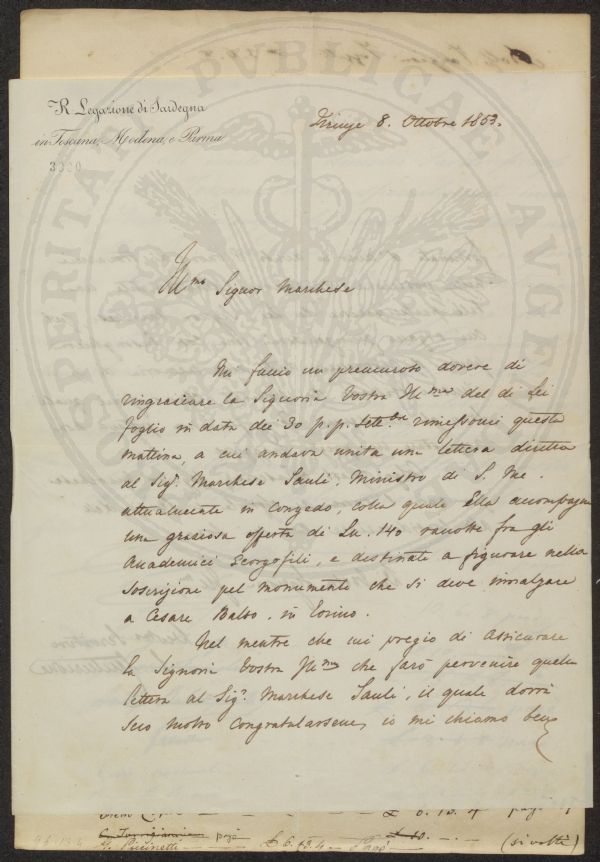 PROSPERITATI PVBLICAE AVGENDAE
R. Legazione di Sardegna
in Toscana, Modena, e Parma
3920
Firenze 8. Ottobre 1853.
Ill.mo Signor Marchese
Mi faccio un premuroso dovere di
ringraziare la Signoria Vostra Ill.ma del di Lei
foglio in data dei 30 p.p. Sett.bre rimessomi questa
mattina, a cui andava unita una lettera diretta
al Sig.r Marchese Sauli, Ministro di S. M.
attualmente in congedo, colla quale Ella accompagna
una graziosa offerta di Ln. 140 raccolte fra gli
Accademici Georgofili, e destinate a figurare nella
soscrizione pel monumento che si deve innalzare
a Cesare Balbo, in Torino.
Nel mentre che mi pregio di assicurare
la Signoria Vostra Ill.ma che farò pervenire quella
lettera al Sig.r Marchese Sauli, il quale dovrà
seco molto congratularsene, io mi chiamo ben
£ 6.13.4
pagò
£ 6.13.4 - Pagò
£ 10
(si volti)